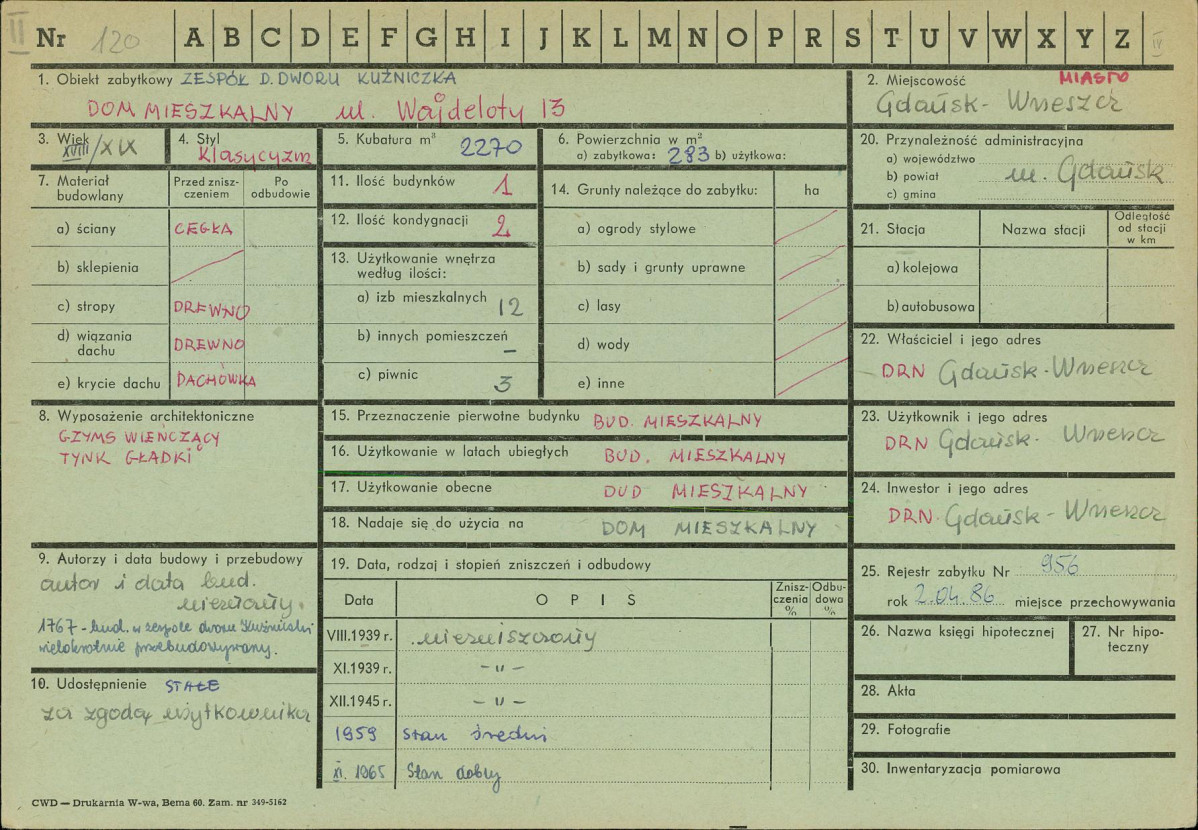 II
Nr 120 A B C D E F G H I J K L M N O P R S T U V W X Y Z IV
1. Obiekt zabytkowy ZESPÓŁ D. DWORU KUŹNICZKA
DOM MIESZKALNY ul. Wajdeloty 13
2. Miejscowość MIASTO
Gdańsk - Wrzeszcz
3. Wiek XVIII/XIX
4. Styl
Klasycyzm
5. Kubatura m³ 2270
6. Powierzchnia w m²
a) zabytkowa: 283 b) użytkowa:
7. Materiał budowlany
Przed zniszczeniem
Po odbudowie
a) ściany CEGŁA
b) sklepienia
c) stropy DREWNO
d) wiązania dachu DREWNO
e) krycie dachu DACHÓWKA
8. Wyposażenie architektoniczne
GZYMS WIEŃCZĄCY
TYNK GŁADKI
9. Autorzy i data budowy i przebudowy
autor i data bud.
nieznany.
1767 - bud. w zespole dworu Kuźniczki
wielokrotnie przebudowywany.
10. Udostępnienie STAŁE
za zgodą użytkownika
11. Ilość budynków 1
12. Ilość kondygnacji 2
13. Użytkowanie wnętrza
według ilości:
a) izb mieszkalnych 12
b) innych pomieszczeń –
c) piwnic 3
14. Grunty należące do zabytku: ha
a) ogrody stylowe
b) sady i grunty uprawne
c) lasy
d) wody
e) inne
15. Przeznaczenie pierwotne budynku BUD. MIESZKALNY
16. Użytkowanie w latach ubiegłych BUD. MIESZKALNY
17. Użytkowanie obecne BUD MIESZKALNY
18. Nadaje się do użycia na DOM MIESZKALNY
19. Data, rodzaj i stopień zniszczeń i odbudowy
Data
O P I S
Zniszczenia %
Odbudowa %
VIII.1939 r. niezniszczony
XI.1939 r. – „ –
XII.1945 r. – „ –
1959 Stan średni
XI. 1965 Stan dobry
20. Przynależność administracyjna
a) województwo
b) powiat m. Gdańsk
c) gmina
21. Stacja
Nazwa stacji
Odległość od stacji w km
a) kolejowa
b) autobusowa
22. Właściciel i jego adres
DRN Gdańsk - Wrzeszcz
23. Użytkownik i jego adres
DRN Gdańsk - Wrzeszcz
24. Inwestor i jego adres
DRN. Gdańsk - Wrzeszcz
25. Rejestr zabytku Nr 956
rok 2.04.86 miejsce przechowywania
26. Nazwa księgi hipotecznej
27. Nr hipoteczny
28. Akta
29. Fotografie
30. Inwentaryzacja pomiarowa
CWD — Drukarnia W-wa, Bema 60. Zam. nr 349-5162